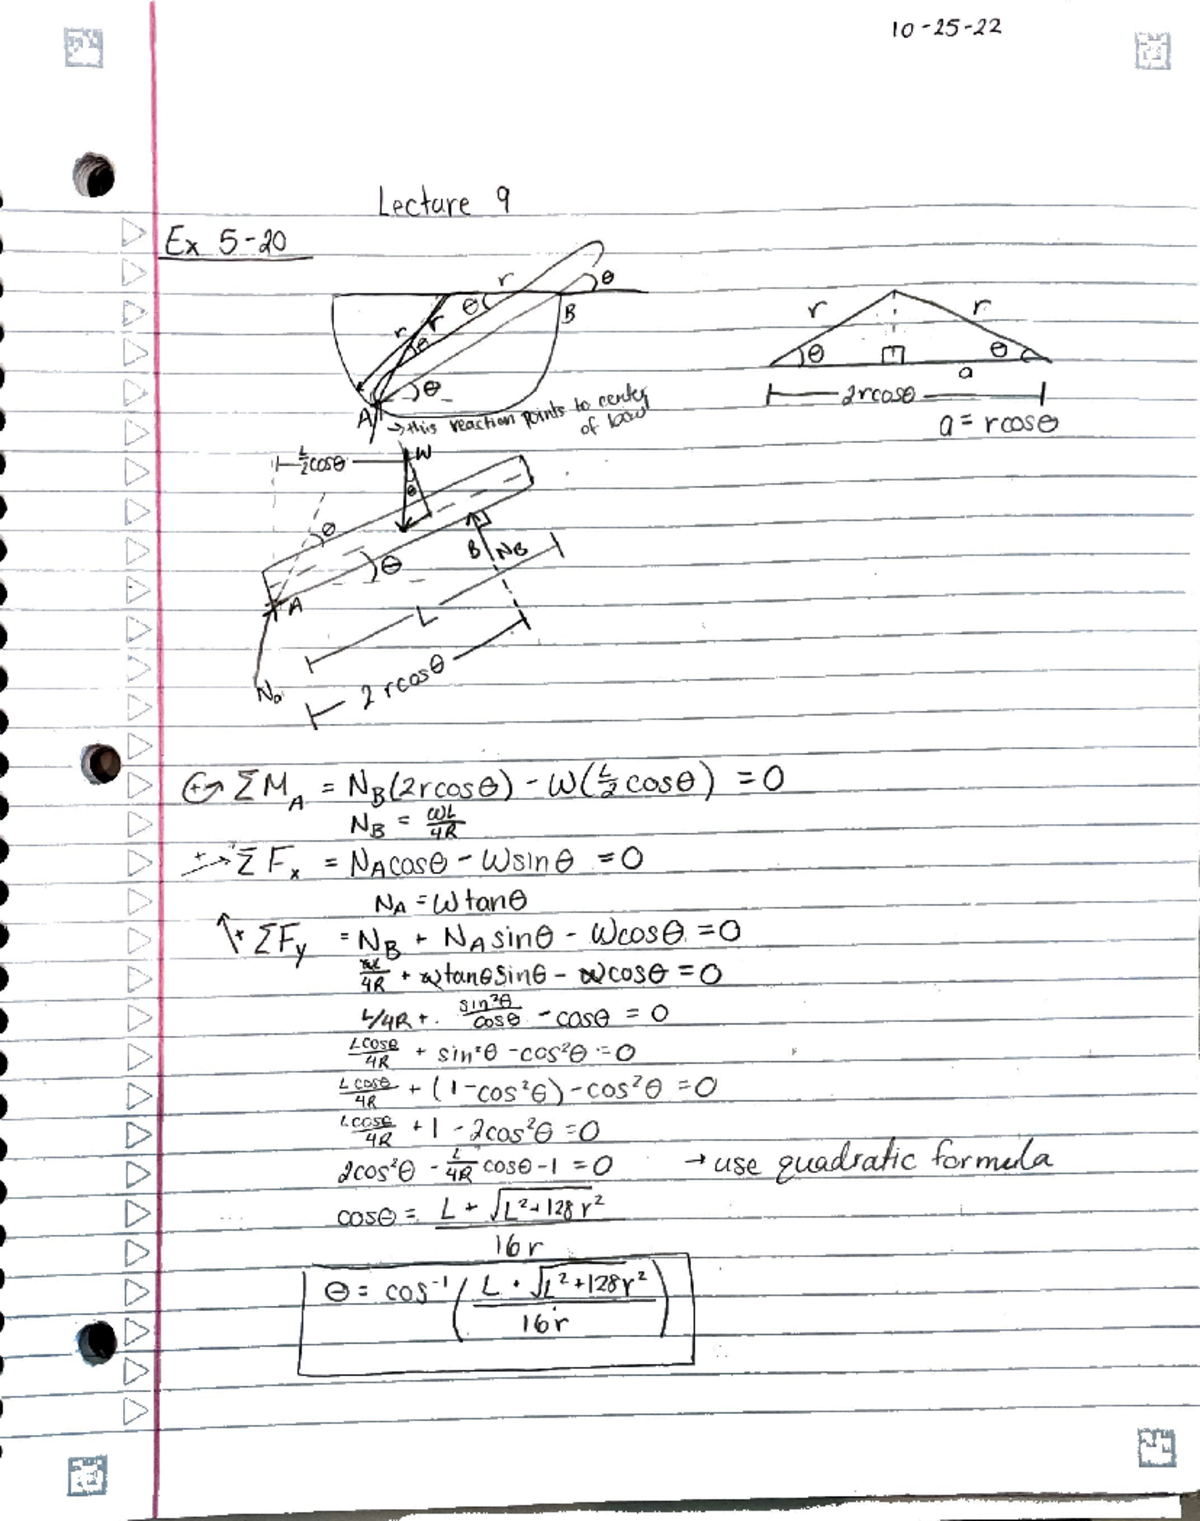 10-25-22
Lecture 9
Ex 5-20
r
θ
θ
B
r
r
θ
θ
A
→this reaction points to center
of bowl
r
r
θ
θ
a
2rcosθ
a = rcosθ
L/2 cosθ
W
θ
θ
θ
B
NB
A
L
2 rcosθ
↺+ ΣM_A = N_B(2rcosθ) - W(L/2 cosθ) = 0
N_B = WL/4R
+→ ΣF_x = N_A cosθ - Wsinθ = 0
N_A = Wtanθ
↑+ ΣF_y = N_B + N_A sinθ - Wcosθ = 0
WL/4R + Wtanθsinθ - Wcosθ = 0
L/4R + sin²θ/cosθ - cosθ = 0
Lcosθ/4R + sin²θ - cos²θ = 0
Lcosθ/4R + (1-cos²θ) - cos²θ = 0
Lcosθ/4R + 1 - 2cos²θ = 0
2cos²θ - L/4R cosθ - 1 = 0 → use quadratic formula
cosθ = L + √L²+128r² / 16r
θ = cos⁻¹( L + √L²+128r² / 16r )